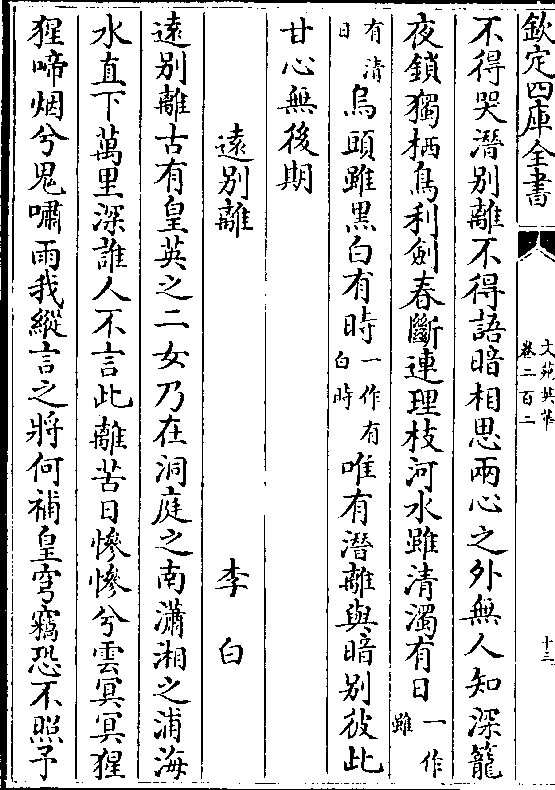 欽定四庫全書
文苑英華
卷二百二
十三
不得哭潛別離不得語暗相思兩心之外無人知深籠
夜鎖獨栖鳥利劍春斷連理枝河水雖清濁有日一作雖
有清日烏頭雖黑白有時一作有白時唯有潛離與暗別彼此
甘心無後期
遠別離
李白
遠別離古有皇英之二女乃在洞庭之南瀟湘之浦海
水直下萬里深誰人不言此離苦日慘慘兮雲冥冥猩
猩啼烟兮鬼嘯雨我縱言之將何補皇穹竊恐不照予